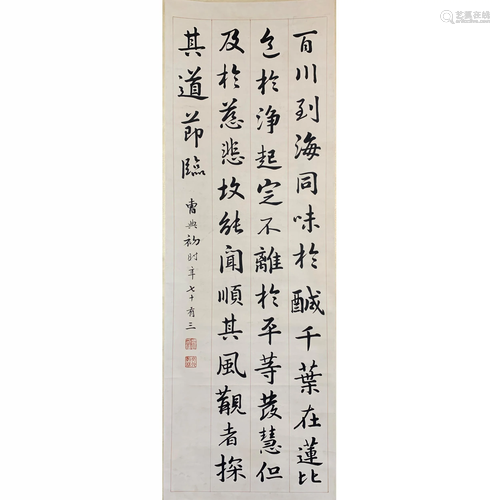 百川到海同味於醎千葉在蓮比
色於淨起定不離於平等發慧但
及於慈悲故能聞順其風觀者探
其道節臨
曹典初時年七十有三
艺狐在线
artfoxlive.com